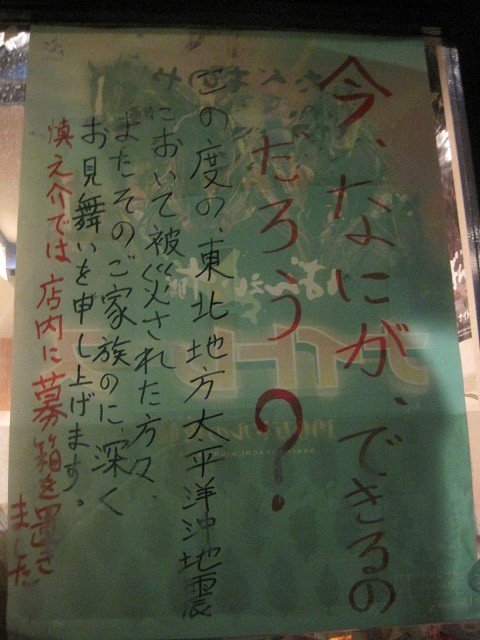 今、なにが、できるの
だろう?
この度の、東北地方太平洋沖地震
において被災された方々、
またそのご家族のに、深く
お見舞いを申し上げます。
慎之介では店内に募箱を置き
ました